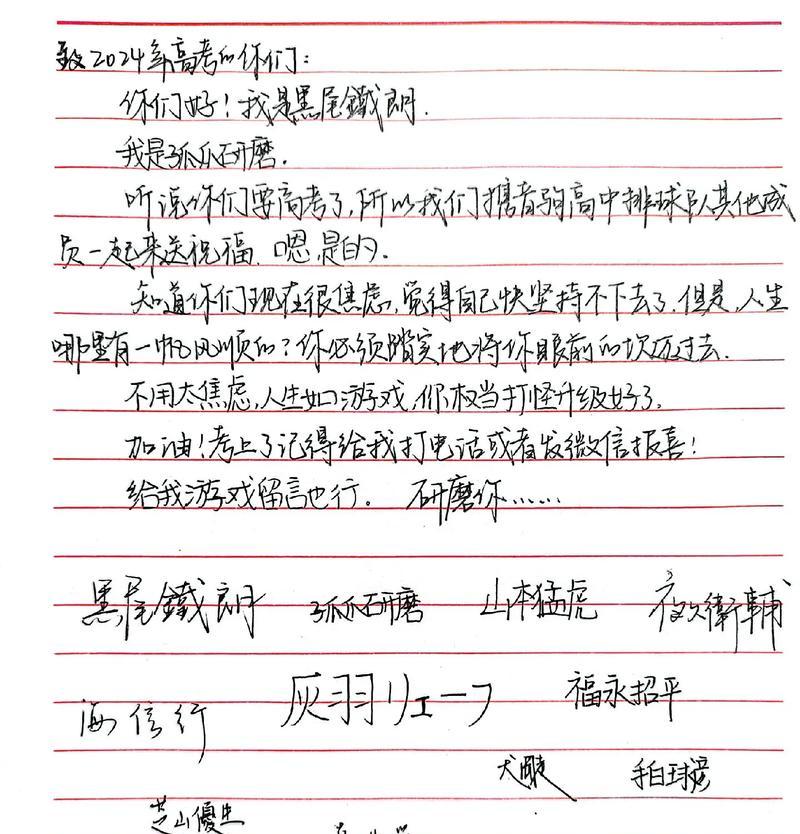 致2024年高考的你们:
你们好!我是黑尾鐵朗.
我是孤爪研磨.
听说你们要高考了,所以我们携音驹高中排球队其他成
员一起来送祝福.嗯,是的.
知道你们现在很焦虑,觉得自己快坚持不下去了.但是,人生
哪里有一帆风顺的?你必须踏实地将你眼前的坎迈过去.
不用太焦虑,人生如游戏,你权当打怪升级好了.
加油!考上了记得给我打电话或者发微信报喜!
给我游戏留言也行。 研磨你……
黑尾鐵朗 孤爪研磨 山本猛虎 夜久衛輔
海信行 灰羽リエーフ 福永招平
犬岡走 手白球彦
芝山優生